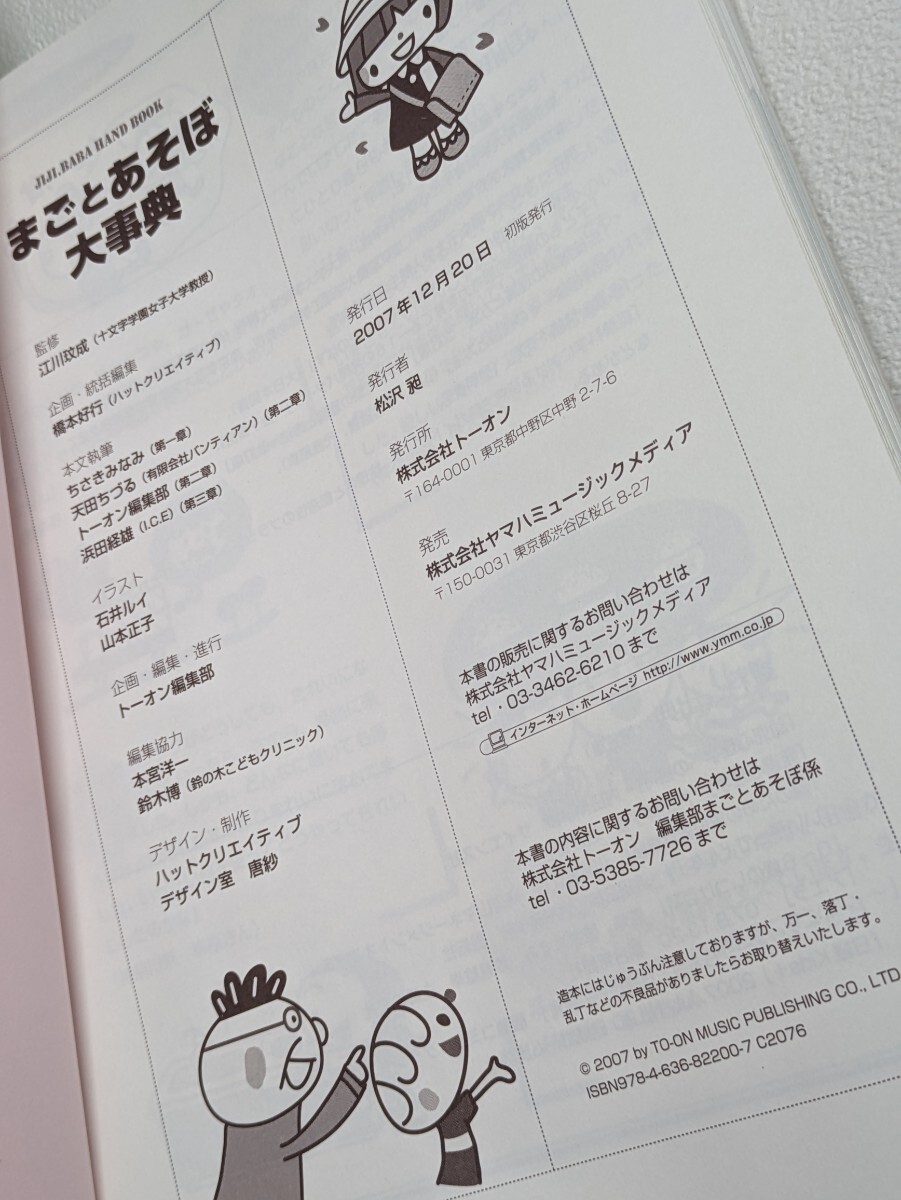 JIJI.BABA HAND BOOK
まごとあそぼ
大事典
監修
江川玟成（十文字学園女子大学教授）
企画・統括編集
橋本好行（ハットクリエイティブ）
本文執筆
ちさきみなみ（第一章）
天田ちづる（有限会社バンティアン）（第二章）
トーオン編集部（第二章）
浜田経雄（I.C.E）（第三章）
イラスト
石井ルイ
山本正子
企画・編集・進行
トーオン編集部
編集協力
本宮洋一
鈴木博（鈴の木こどもクリニック）
デザイン・制作
ハットクリエイティブ
デザイン室　唐紗
発行日
2007年12月20日　初版発行
発行者
松沢 昶
発行所
株式会社トーオン
〒164-0001 東京都中野区中野 2-7-6
発売
株式会社ヤマハミュージックメディア
〒150-0031 東京都渋谷区桜丘 8-27
本書の販売に関するお問い合わせは
株式会社ヤマハミュージックメディア
tel・03-3462-6210まで
インターネット・ホームページ http://www.ymm.co.jp
本書の内容に関するお問い合わせは
株式会社トーオン　編集部まごとあそぼ係
tel・03-5385-7726まで
造本にはじゅうぶん注意しておりますが、万一、落丁・
乱丁などの不良品がありましたらお取り替えいたします。
© 2007 by TO-ON MUSIC PUBLISHING CO., LTD
ISBN978-4-636-82200-7 C2076